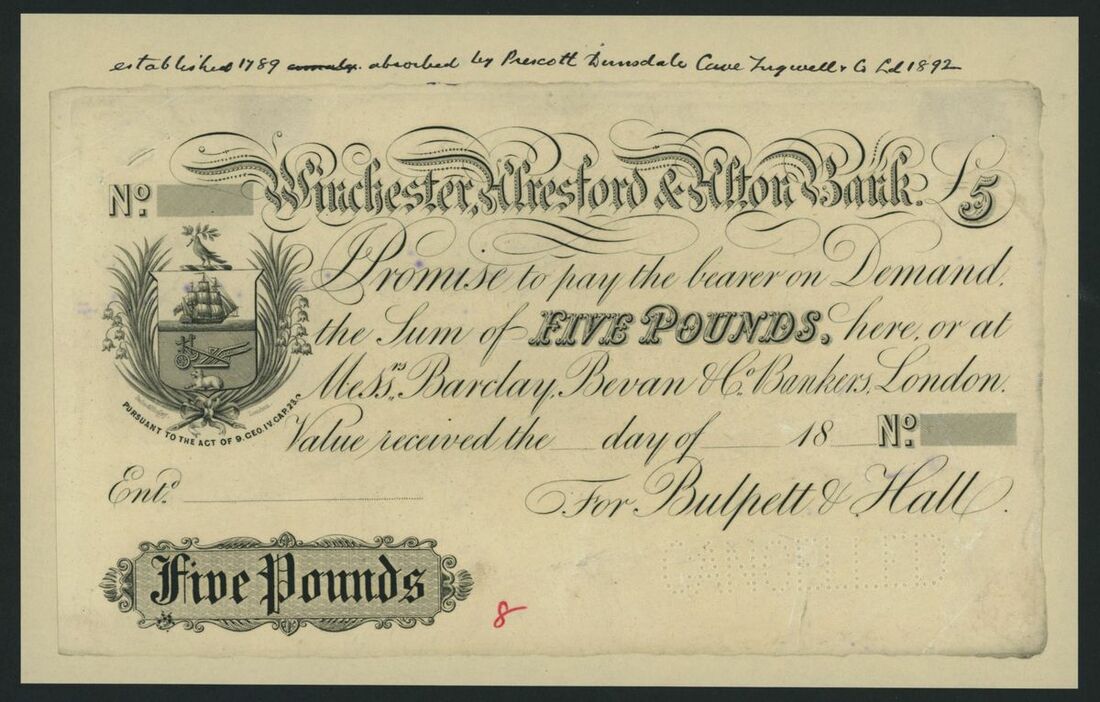 established 1789 absorbed by Prescott Dimsdale Cave Tugwell & Co Ld 1892
Winchester, Alresford & Alton Bank. £5
No.
I Promise to pay the bearer on Demand,
the Sum of FIVE POUNDS, here, or at
Messrs. Barclay, Bevan & Co. Bankers, London.
PURSUANT TO THE ACT OF 9. GEO. IV. CAP. 23.
Value received the day of 18 No.
Entd.
For Bulpett & Hall.
Five Pounds
CANCELLED
8